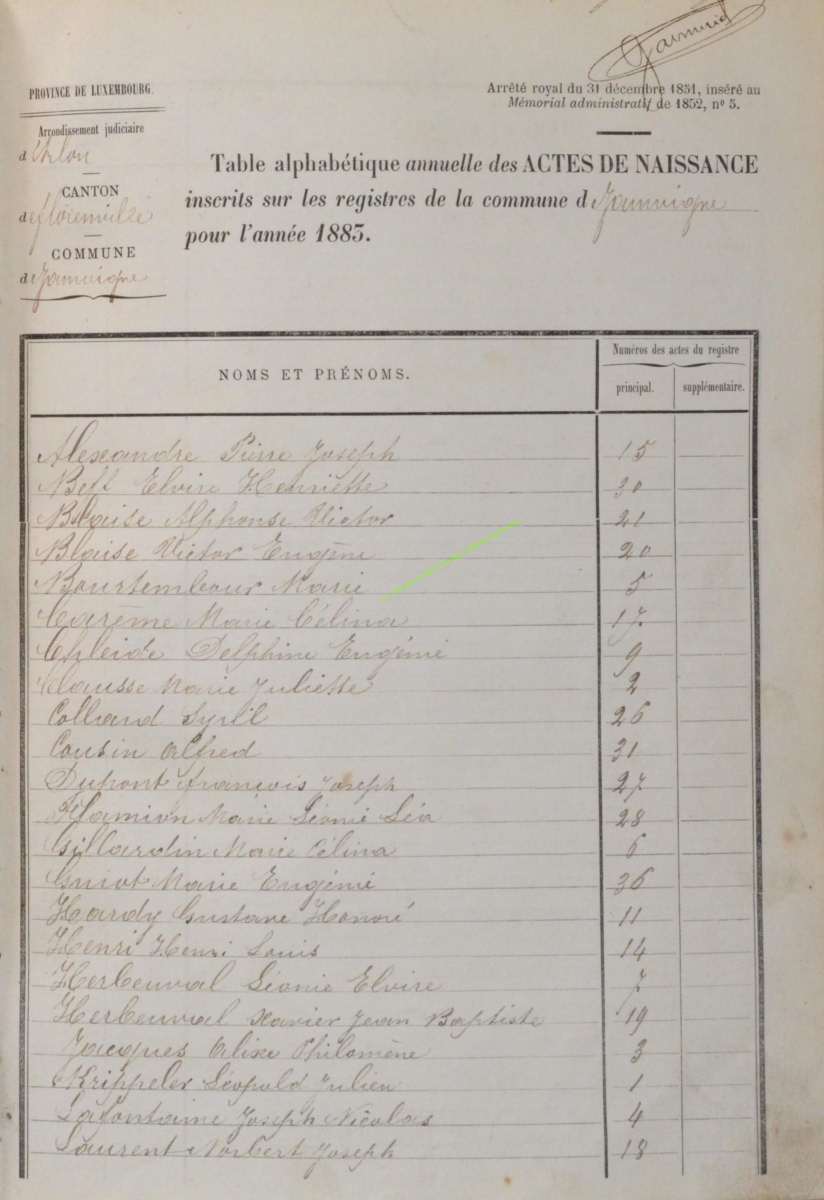 Jamvigne
PROVINCE DE LUXEMBOURG.
Arrondissement judiciaire
d'Arlon
CANTON
de Florenville
COMMUNE
de Jamoigne
Arrêté royal du 31 décembre 1851, inséré au
Mémorial administratif de 1852, nº 5.
Table alphabétique annuelle des ACTES DE NAISSANCE
inscrits sur les registres de la commune de Jamoigne
pour l'année 1883.
NOMS ET PRÉNOMS.
Numéros des actes du registre
principal. supplémentaire.
Alexandre Pierre Joseph 15
Elvire Henriette 30
Blaise Alphonse Victor 21
Blaise Victor Eugène 20
Bourtembour Marie 5
Carème Marie Célina 17
Chleide Delphine Eugénie 9
Clausse Marie Juliette 2
Collard Syril 26
Cousin Alfred 31
Dupont François Joseph 27
Flamion Marie Léonie Léa 28
Gillardin Marie Célina 6
Guiot Marie Eugénie 36
Hardy Gustave Honoré 11
Henri Henri Louis 14
Herbeuval Léonie Elvire 7
Herbeuval Xavier Jean Baptiste 19
Jacques Alixe Philomène 3
Krippeler Léopold Julien 1
Lafontaine Joseph Nicolas 4
Laurent Norbert Joseph 18